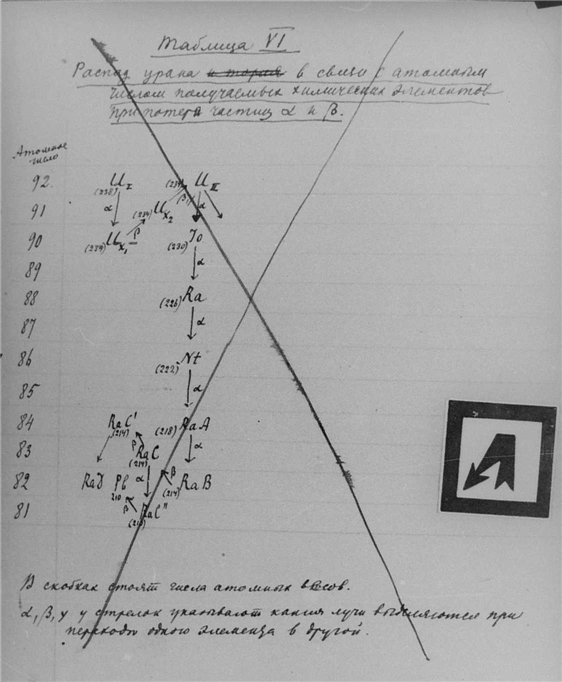 Таблица VI
Распад урана и тория в связи с атомным
числом получаемых химических элементов
при потере частиц α и β.
Атомное число
92. U I (238) (234) U II
91 α (234) U X2 β (β) α
90 (234) U X1 β (230) Jo
89 α
88 (226) Ra
87 α
86 (222) Nt
85 α
84 RaC' (214) (218) RaA
83 β RaC (214) α
82 RaD Pb 210 α β (214) RaB
81 β (210) RaC"
В скобках стоят числа атомных весов.
α, β, γ у стрелок указывают какия лучи выделяются при
переходе одного элемента в другой.